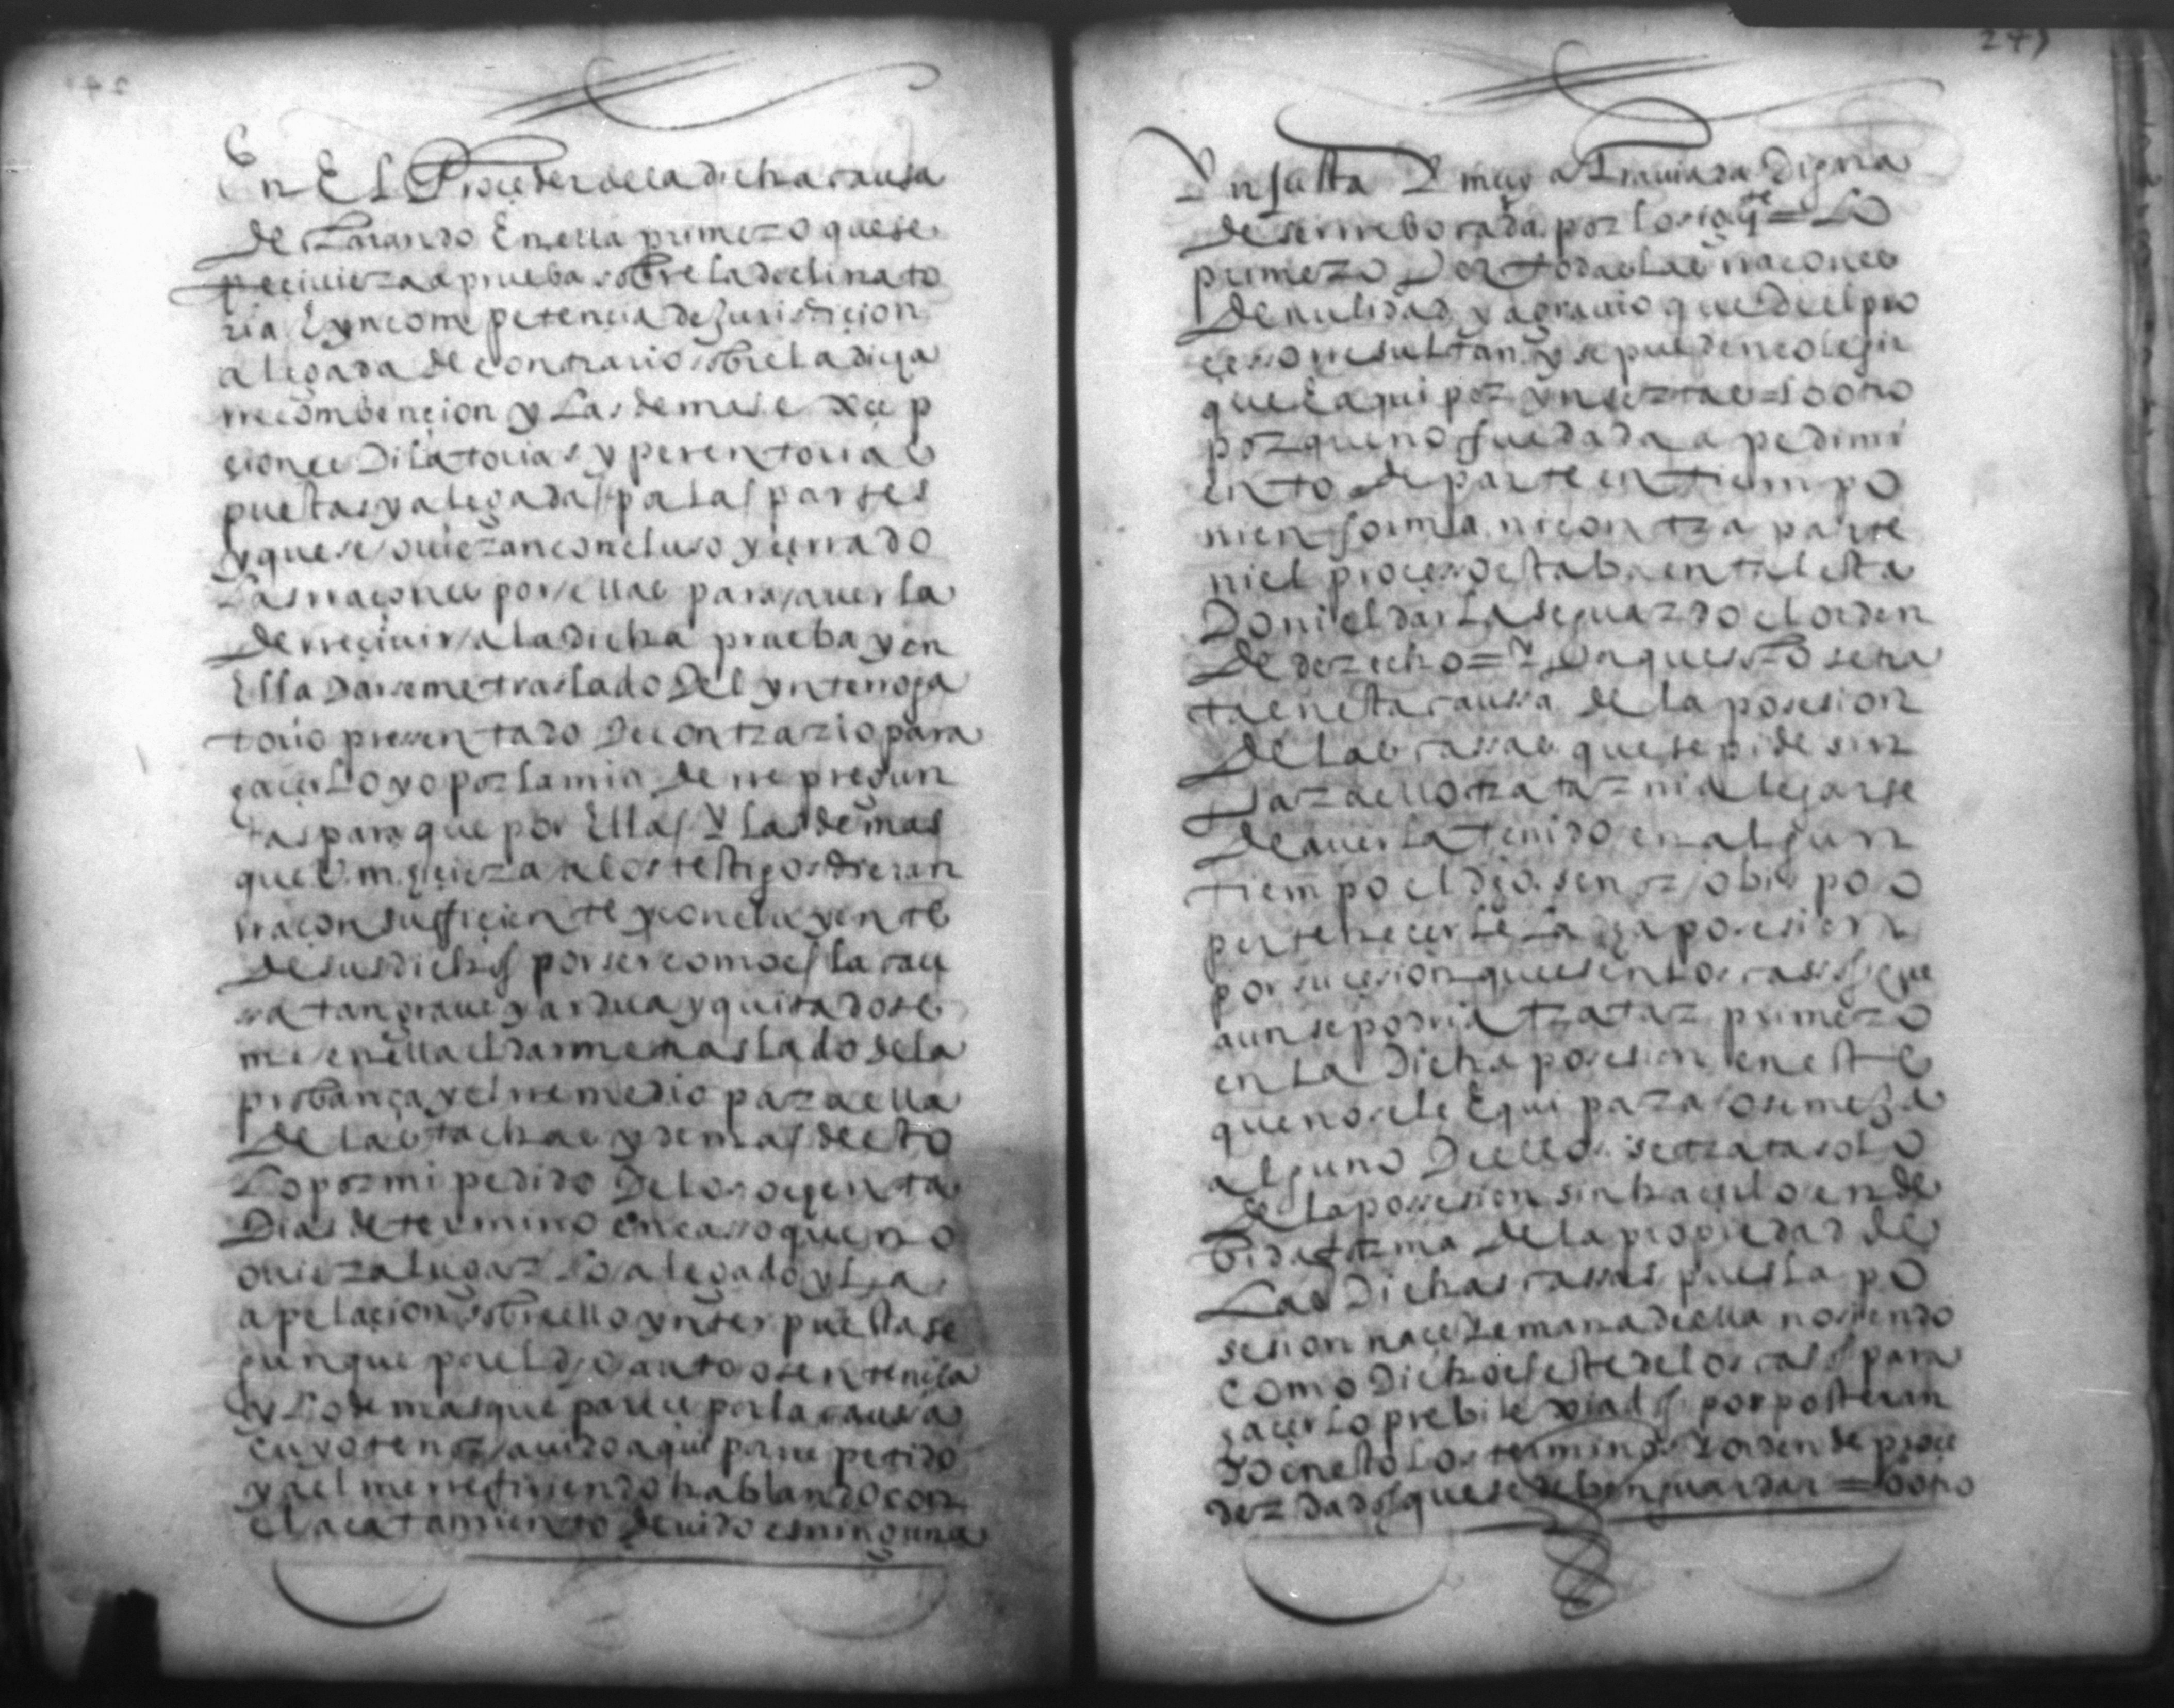 241
En El Proçeder de la dicha caussa
declarando En ella primero que se
reciuiera a prueba sobre la declinato
ria E yncompetencia de Jurisdiçion
alegada de contrario sobre la dicha
rrecombençion y Las demas exçep
çiones Dilatorias y perentorias
puestas y alegadas por las partes
y que se ouieran concluso y çerrado
Las rraçones por ellas para auerla
de rreçiuir a la dicha prueba y en
Ella Darseme traslado Del ynterroga
torio presentado De contrario para
haçerlo yo por la mia de rrepregun
tas para que por Ellas Y las demas
que V. m. hiciera a los testigos dieran
rraçon suffiçiente y concluyente
De sus dichos por ser como es la cau
ssa tan graue y ardua y quitadose
me en ella el darme traslado de la
probança y el rremedio para ella
De las tachas y demas de esto
Lo por mi pedido De los ochenta
Dias de termino en casso que no
ouiera lugar Lo alegado y La
apelaçion sobre ello ynterpuesta se
gun que por el dho auto o sentençia
y Lo demas que pareçe por la caussa
cuyo tenor auido aqui por rrepetido
y a el me rrefiriendo hablando con
el acatamiento deuido es ninguna
Ynjusta Y muy agrauiada Digna
de ser rreborada por lo siguiente = Lo
primero Por todas las rraçones
De nulidad y agrauio que de el pro
çesso rresultan y se pueden colegir
que E aqui por ynsertas = Lo otro
porque no fue dada a pedimi
ento de parte en tiempo
ni en forma ni contra parte
ni el proçesso estaba en tal esta
Do ni el darla se guardo el orden
De derecho = Y Porque si solo se tra
ta en esta caussa de la posesion
De las cassas que se pide sin
Para ello tratar ni alegarse
De auerla tenido en algun
tiempo el dho senor obispo o
perteneçerle La dha posesion
por suçesion que es en Los casos que
aun se podria tratar primero
en la Dicha posesion en este
que no se le Equipara o semeja
alguno De ellos se trata solo
De la possesion sin haçerlo en de
bida forma de la propiedad de
Las Dichas cassas pues la po
sesion naçe Y emana de ella no siendo
como Dicho es este de los casos para
haçerlo prebilexiados por posteran
do en esto Los terminos Y orden de proçe
der dados que se deben guardar = Lo otro